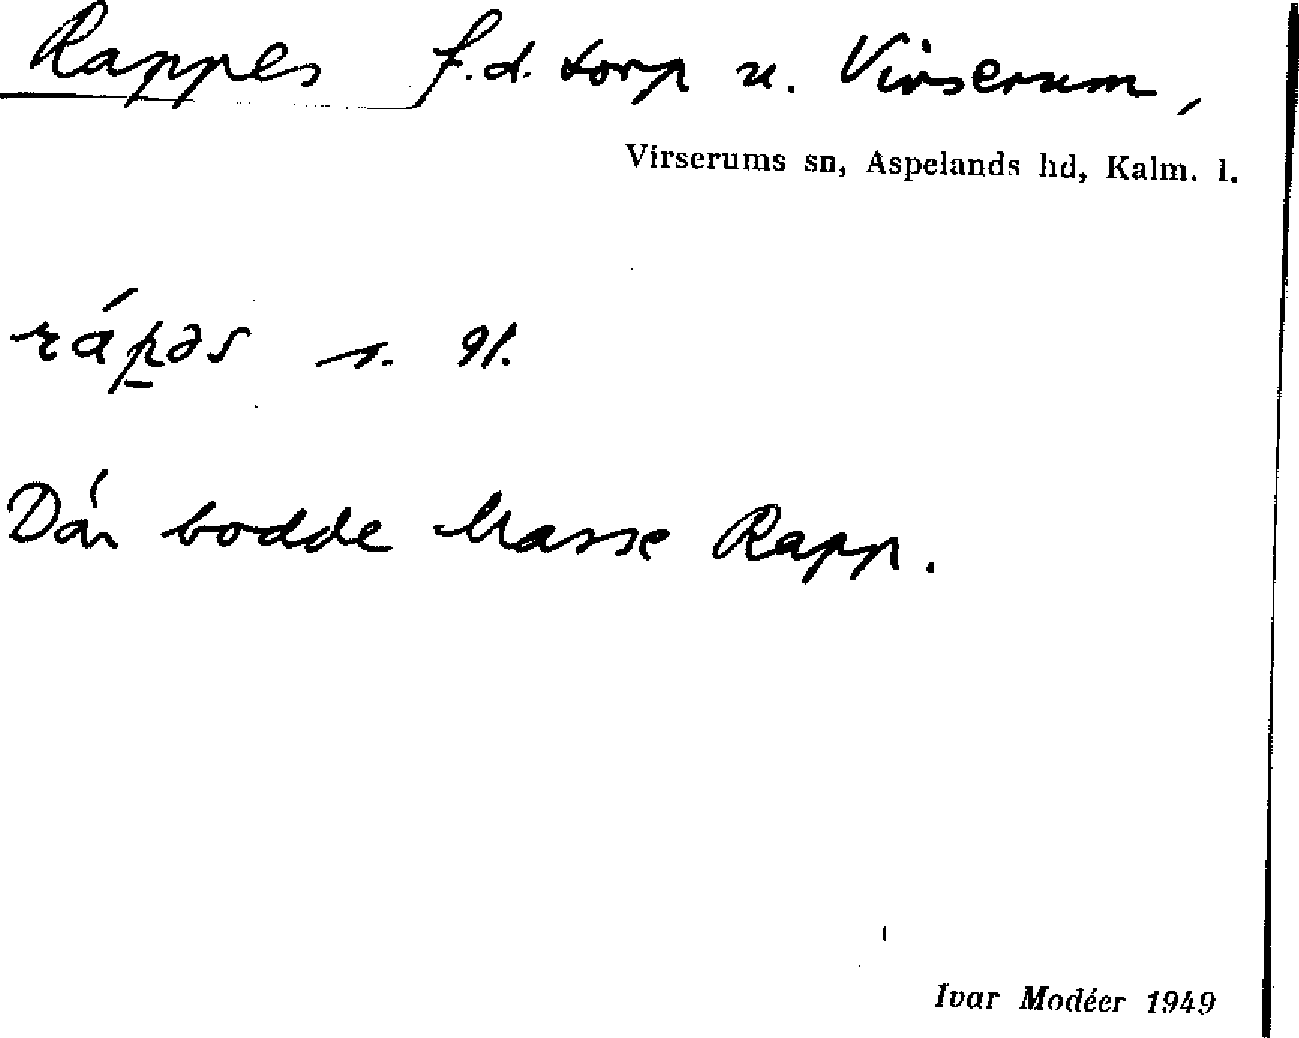 Rappes f.d. torp u. Virserum,
Virserums sn, Aspelands hd, Kalm. l.
rápəs s. 91.
Där bodde Masse Rapp.
Ivar Modéer 1949